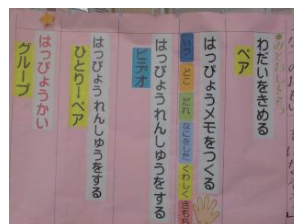 わだいをきめる
ペア
はっぴょうメモをつくる
いつ
どこ
だれ
なにをした
くわしく
きもち
はっぴょうれんしゅうをする
ビデオ
はっぴょうれんしゅうをする
ひとり→ペア
はっぴょうかい
グループ